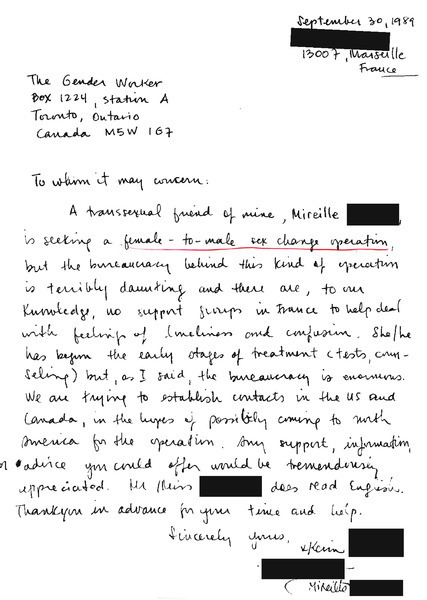 September 30, 1989
13007, Marseille
France
The Gender Worker
Box 1224, Station A
Toronto, Ontario
Canada M5W 1G7
To whom it may concern:
A transsexual friend of mine, Mireille
is seeking a female-to-male sex change operation,
but the bureaucracy behind this kind of operation
is terribly daunting and there are, to our
knowledge, no support groups in France to help deal
with feelings of loneliness and confusion. She/he
has begun the early stages of treatment (tests, coun-
seling) but, as I said, the bureaucracy is enormous.
We are trying to establish contacts in the US and
Canada, in the hopes of possibly coming to north
America for the operation. Any support, information,
or advice you could offer would be tremendously
appreciated. Mr/Miss does read English.
Thankyou in advance for your time and help.
Sincerely yours,
(Mireille